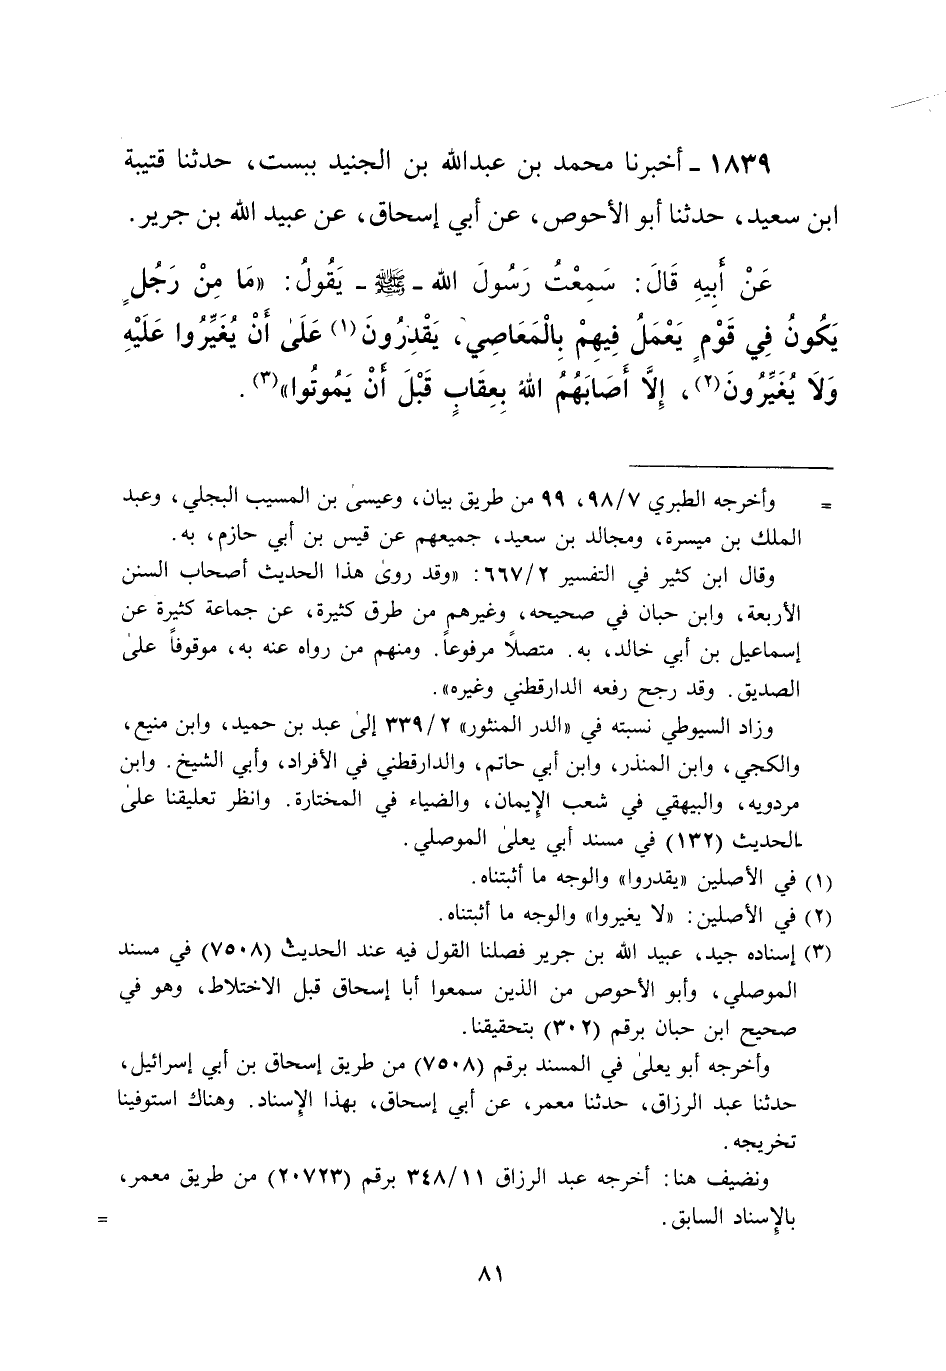 ١٨٣٩ - أخبرنا محمد بن عبدالله بن الجنيد ببست، حدثنا قتيبة
ابن سعيد، حدثنا أبو الأحوص، عن أبي إسحاق، عن عبيد الله بن جرير.
عَنْ أَبِيهِ قَالَ: سَمِعْتُ رَسُولَ الله - ﷺ - يَقُولُ: «مَا مِنْ رَجُلٍ
يَكُونُ فِي قَوْمٍ يَعْمَلُ فِيهِمْ بِالْمَعَاصِي، يَقْدِرُونَ(١) عَلَىٰ أَنْ يُغَيِّرُوا عَلَيْهِ
وَلَا يُغَيِّرُونَ(٢)، إِلَّا أَصَابَهُمُ اللهُ بِعِقَابٍ قَبْلَ أَنْ يَمُوتُوا»(٣).
= وأخرجه الطبري ٩٨/٧، ٩٩ من طريق بيان، وعيسىٰ بن المسيب البجلي، وعبد
الملك بن ميسرة، ومجالد بن سعيد، جميعهم عن قيس بن أبي حازم، به.
وقال ابن كثير في التفسير ٦٦٧/٢: «وقد روىٰ هذا الحديث أصحاب السنن
الأربعة، وابن حبان في صحيحه، وغيرهم من طرق كثيرة، عن جماعة كثيرة عن
إسماعيل بن أبي خالد، به. متصلاً مرفوعاً. ومنهم من رواه عنه به، موقوفاً علىٰ
الصديق. وقد رجح رفعه الدارقطني وغيره».
وزاد السيوطي نسبته في «الدر المنثور» ٣٣٩/٢ إلىٰ عبد بن حميد، وابن منيع،
والكجي، وابن المنذر، وابن أبي حاتم، والدارقطني في الأفراد، وأبي الشيخ. وابن
مردويه، والبيهقي في شعب الإيمان، والضياء في المختارة. وانظر تعليقنا علىٰ
الحديث (١٣٢) في مسند أبي يعلىٰ الموصلي.
(١) في الأصلين «يقدروا» والوجه ما أثبتناه.
(٢) في الأصلين: «لا يغيروا» والوجه ما أثبتناه.
(٣) إسناده جيد، عبيد الله بن جرير فصلنا القول فيه عند الحديث (٧٥٠٨) في مسند
الموصلي، وأبو الأحوص من الذين سمعوا أبا إسحاق قبل الاختلاط، وهو في
صحيح ابن حبان برقم (٣٠٢) بتحقيقنا.
وأخرجه أبو يعلىٰ في المسند برقم (٧٥٠٨) من طريق إسحاق بن أبي إسرائيل،
حدثنا عبد الرزاق، حدثنا معمر، عن أبي إسحاق، بهذا الإسناد. وهناك استوفينا
تخريجه.
ونضيف هنا: أخرجه عبد الرزاق ٣٤٨/١١ برقم (٢٠٧٢٣) من طريق معمر،
بالإسناد السابق. =
٨١